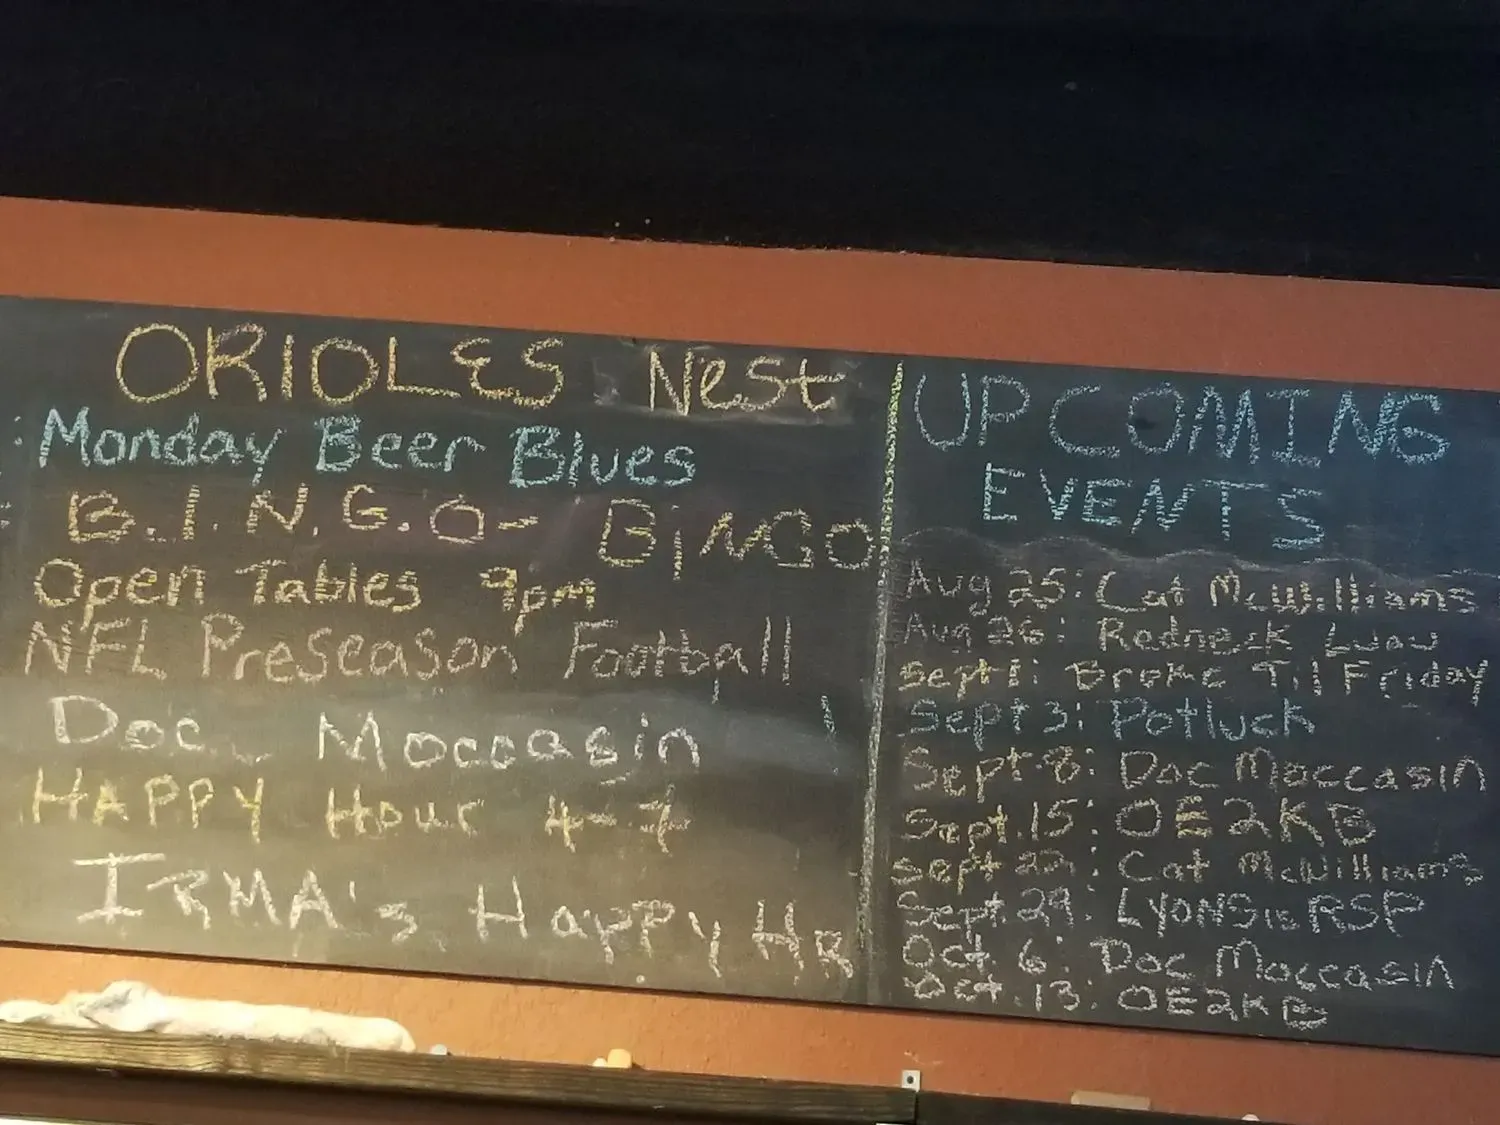 ORIOLES Nest
Monday Beer Blues
B.I.N.G.O- BiNGO
Open Tables 9pm
NFL Preseason Football
Doc Moccasin
HAPPY Hour 4-7
IRMA's Happy HR
UPCOMING
EVENTS
Aug 25: Cat McWilliams
Aug 26: Redneck Luau
Sept 1: Broke Til Friday
Sept 3: Potluck
Sept 8: Doc Moccasin
Sept. 15: OE2KB
Sept 22: Cat McWilliams
Sept. 29: LYONS is RSP
Oct. 6: Doc Moccasin
Oct. 13: OE2KB